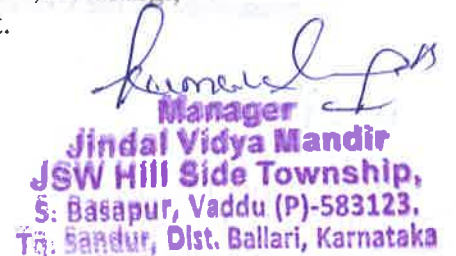 Manager
Jindal Vidya Mandir
JSW Hill Side Township,
S: Basapur, Vaddu (P)-583123.
Tq: Sandur, Dist. Ballari, Karnataka